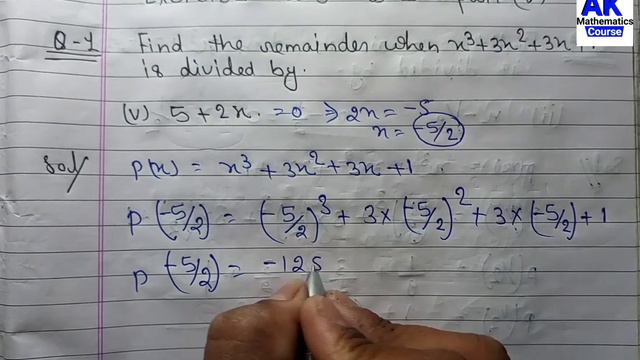 AK
Mathematics
Course
Q-1 Find the remainder when x³+3x²+3x+1.
is divided by.
(v) 5+2x. =0 ⇒ 2x = -5
x = -5/2
Sol/ P(x) = x³ + 3x² + 3x + 1
P(-5/2) = (-5/2)³ + 3×(-5/2)² + 3×(-5/2) + 1
P(-5/2) = -125